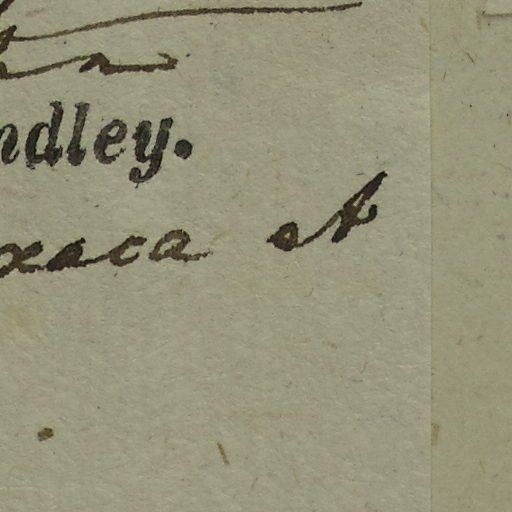 ndley.
xaca A